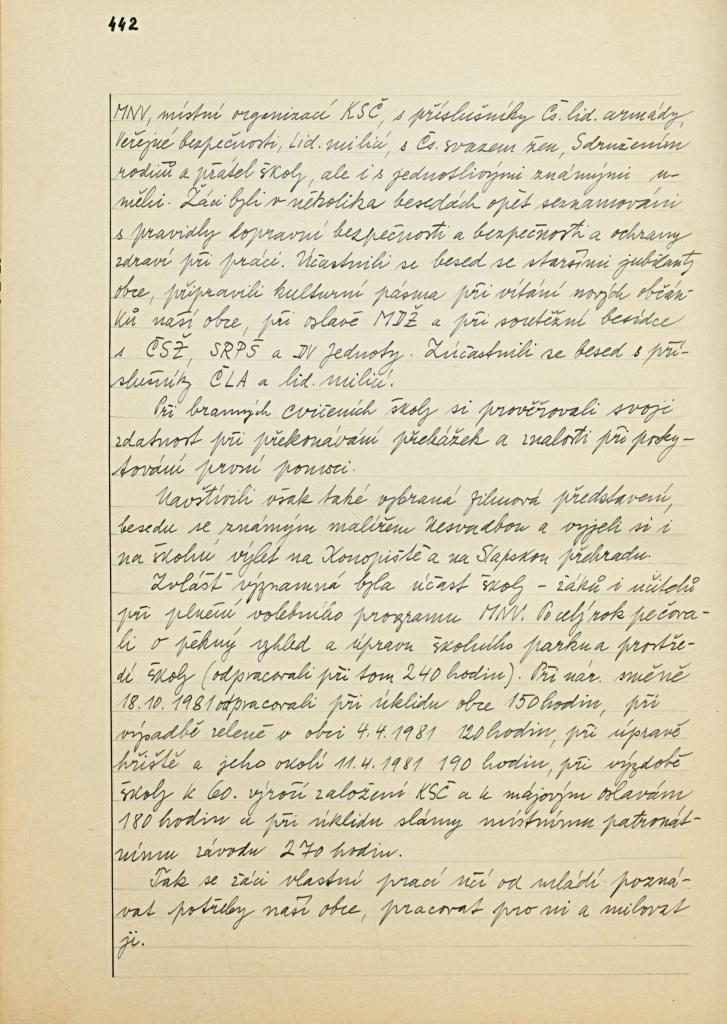 442
MNV, místní organizací KSČ, s příslušníky Čs. lid. armády,
Veřejné bezpečnosti, Lid. milicí, s Čs. svazem žen, Sdružením
rodičů a přátel školy, ale i s jednotlivými známými u-
mělci. Žáci byli v několika besedách opět seznamováni
s pravidly dopravní bezpečnosti a bezpečnosti a ochrany
zdraví při práci. Účastnili se besed se staršími jubilanty
obce, připravili kulturní pásma při vítání nových občán-
ků naší obce, při oslavě MDŽ a při soutěžní besídce
s ČSŽ, SRPŠ a DV Jednoty. Zúčastnili se besed s pří-
slušníky ČLA a lid. milicí.
Při branných cvičeních školy si prověřovali svoji
zdatnost při překonávání překážek a znalosti při posky-
tování první pomoci.
Navštívili však také vybraná filmová představení,
besedu se známým malířem Nesvadbou a vyjeli si i
na školní výlet na Konopiště a na Slapskou přehradu.
Zvlášť významná byla účast školy - žáků i učitelů
při plnění volebního programu MNV. Po celý rok pečova-
li o pěkný vzhled a úpravu školního parku a prostře-
dí školy (odpracovali při tom 240 hodin). Při nár. směně
18.10.1981 odpracovali při úklidu obce 150 hodin, při
výsadbě zeleně v obci 4.4.1981 120 hodin, při úpravě
hřiště a jeho okolí 11.4.1981 190 hodin, při výzdobě
školy k 60. výročí založení KSČ a k májovým oslavám
180 hodin a při úklidu slámy místnímu patronát-
nímu závodu 270 hodin.
Tak se žáci vlastní prací učí od mládí pozná-
vat potřeby naší obce, pracovat pro ni a milovat
ji.